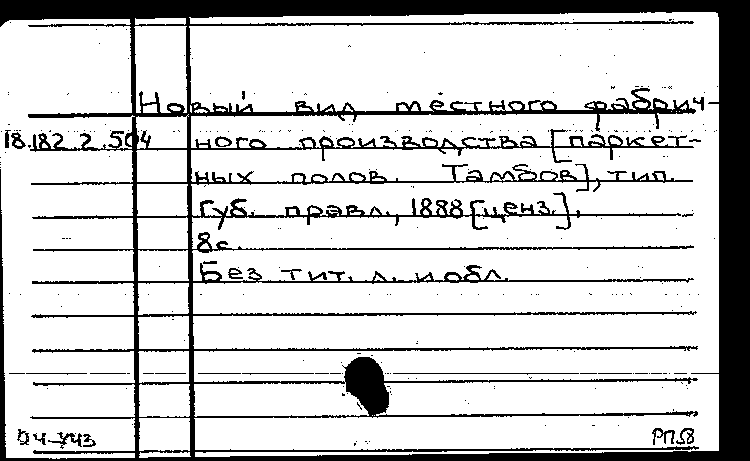 Новый вид местного фабрич-
18.182.2.504 ного производства [паркет-
ных полов. Тамбов], тип.
Губ. правл., 1888 [ценз.].
8с.
Без тит. л. и обл.
РП58